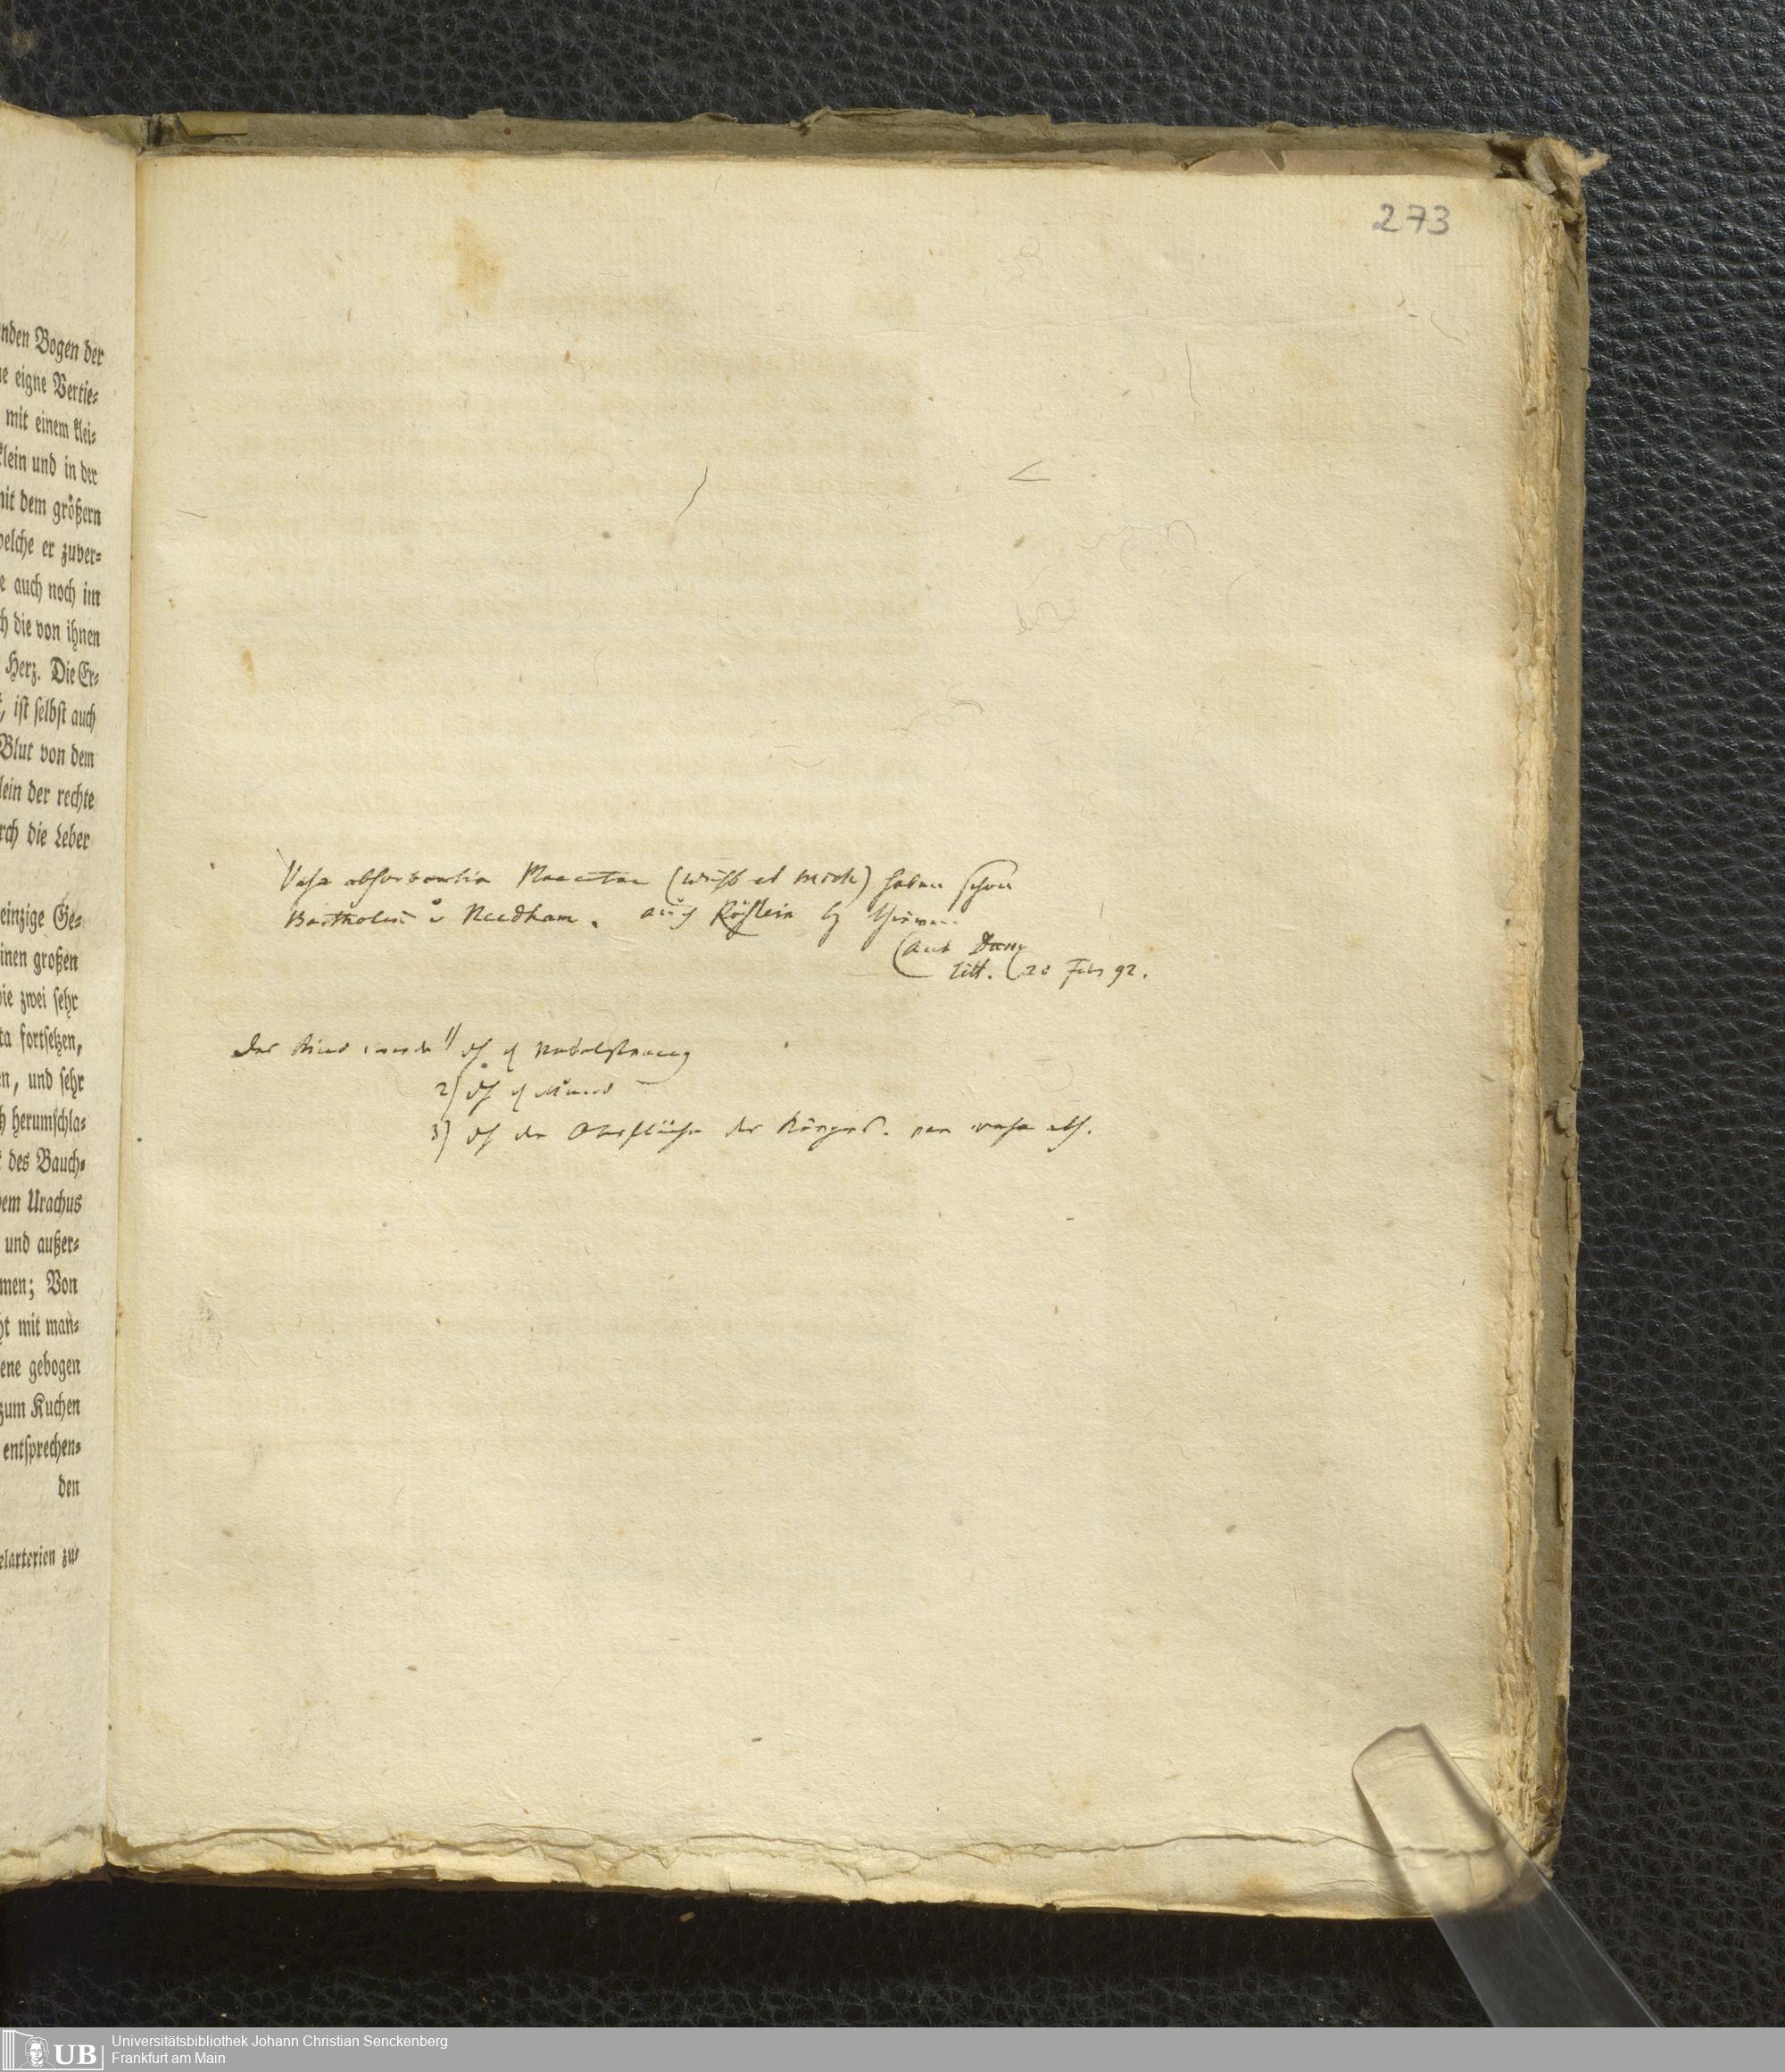 273
nden Bogen der
e eigne Vertie⸗
mit einem klei⸗
klein und in der
mit dem größern
welche er zuver⸗
e auch noch im
ch die von ihnen
Herz. Die Er⸗
, ist selbst auch
Blut von dem
lein der rechte
rch die Leber
einzige Ge⸗
inen großen
die zwei sehr
ta fortsetzen,
en, und sehr
ch herumschla⸗
t des Bauch⸗
dem Urachus
und außer⸗
men; Von
ht mit man⸗
ene gebogen
zum Kuchen
entsprechen⸗
den
elarterien zu
Vasa absorbentia Placentae haben schon
Bartholin u Needham. auch Rößlein
Litt. 28 Febr 92.
Das Kind 1) Nabelstrang
2) Mund
3) der Oberfläche des Körpers. per vasa abs.
Universitätsbibliothek Johann Christian Senckenberg
UB
Frankfurt am Main